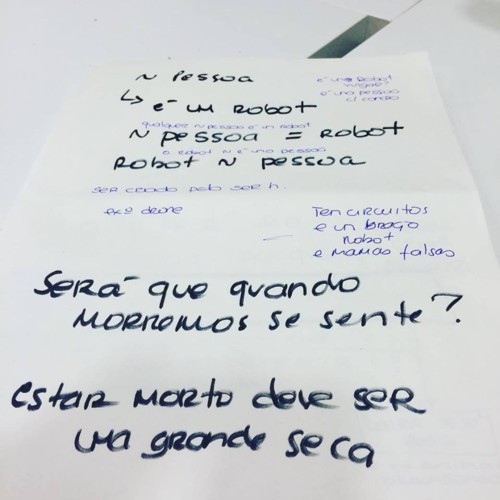 ~ Pessoa
é uno Robot
↳ é um Robot
é uma pessoa
c/ coração
qualquer ñ pessoa é un robot
~ pessoa = Robot
o Robot ñ é uma pessoa
Robot ~ pessoa
Ser criado pelo ser h.
exº drone
Ten circuitos
e un braço
robot
e mamas falsas
Será que quando
morremos se sente?
estar morto deve ser
uma grande seca